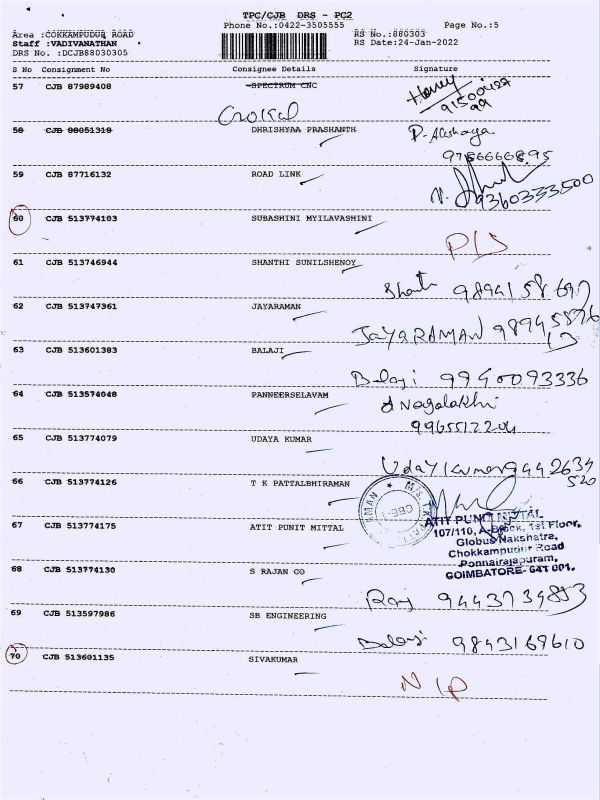 TPC/CJB DRS - PC2
Phone No.:0422-3505555 Page No.:5
Area :COKKAMPUDUR ROAD RS No.:880303
Staff :VADIVANATHAN RS Date:24-Jan-2022
DRS No. :DCJB88030305
S No Consignment No Consignee Details Signature
57 CJB 87989408 SPECTRUM CNC
58 CJB 88051318 DHRISHYAA PRASHANTH
P. Akshaya
9786666895
59 CJB 87716132 ROAD LINK
9360333500
60 CJB 513774103 SUBASHINI MYILAVASHINI
61 CJB 513746944 SHANTHI SUNILSHENOY
62 CJB 513747361 JAYARAMAN
JAYARAMAN
63 CJB 513601383 BALAJI
Balaji 9940093336
64 CJB 513574048 PANNEERSELVAM
9965512204
65 CJB 513774079 UDAYA KUMAR
UdayKumar 9442634
520
66 CJB 513774126 T K PATTALBHIRAMAN
67 CJB 513774175 ATIT PUNIT MITTAL
ATIT PUNIT MITTAL
107/110, A-Block, 1st Floor,
Globus Nakshatra,
Chokkampudur Road
Ponnairajapuram,
COIMBATORE- 641 001.
68 CJB 513774130 S RAJAN CO
Raj 9443734853
69 CJB 513597986 SB ENGINEERING
Balaji 9843169610
70 CJB 513601135 SIVAKUMAR